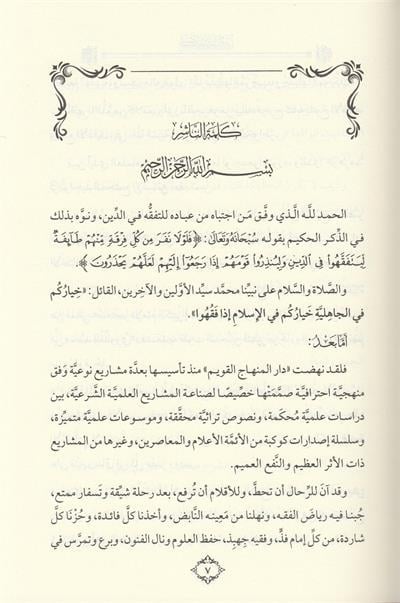 كلمة الناشر
بسم الله الرحمن الرحيم
الحمد للَّه الَّذي وفَّق مَن اجتباه من عباده للتفقُّه في الدِّين، ونوَّه بذلك
في الذِّكر الحكيم بقوله سُبْحَانَهُ وَتَعَالَىٰ: ﴿فَلَوْلَا نَفَرَ مِن كُلِّ فِرْقَةٍ مِّنْهُمْ طَآئِفَةٌ
لِّيَتَفَقَّهُوا۟ فِى ٱلدِّينِ وَلِيُنذِرُوا۟ قَوْمَهُمْ إِذَا رَجَعُوٓا۟ إِلَيْهِمْ لَعَلَّهُمْ يَحْذَرُونَ﴾.
والصَّلاة والسَّلام على نبيِّنا محمَّد سيِّد الأوَّلين والآخِرين، القائل: «خِيارُكُم
في الجاهليَّة خَيارُكُم في الإسلامِ إذا فَقُهُوا».
أَمَّا بَعْدُ:
فلقد نهضت «دار المنهاج القويم» منذ تأسيسها بعدَّة مشاريع نوعيَّة وَفق
منهجيَّة احترافيَّة صمَّمَتْها خصِّيصًا لصناعة المشاريع العلميَّة الشَّرعيَّة، بين
دراسات علميَّة مُحكَمة، ونصوص تراثيَّة محقَّقة، وموسوعات علميَّة متميِّزة،
وسلسلة إصدارات كوكبة من الأئمَّة الأعلام والمعاصرين، وغيرها من المشاريع
ذات الأثر العظيم والنَّفع العميم.
وقد آنَ للرِّحال أن تُحطَّ، وللأقلام أن تُرفع، بعد رحلة شيِّقة وتَسفار ممتع،
جُبنا فيه رياضَ الفقه، ونهلنا من مَعِينه النَّابض، وأخذنا كلَّ فائدة، وحُزْنا كلَّ
شاردة، من كلِّ إمام فذٍّ، وفقيه جِهبِذ، حفظ العلوم ونال الفنون، وبرع وتمرَّس في
٧